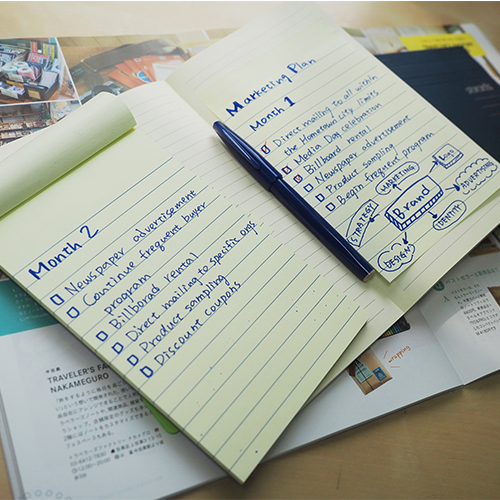 Marketing Plan
Month 1
Direct mailing to all within
the Hometown city limits
Media Day celebration
Billboard rental
Newspaper advertisement
Product sampling
Begin frequent program
MARKETING
LOGO
ADVERTISING
Brand
STRATEGY
IDENTITY
DESIGN
Month 2
Newspaper advertisement
Continue frequent buyer
program
Billborad rental
Direct mailing to specific orgs
Product sampling
Discount coupons
TRAVELER'S FA
NAKAMEGURO